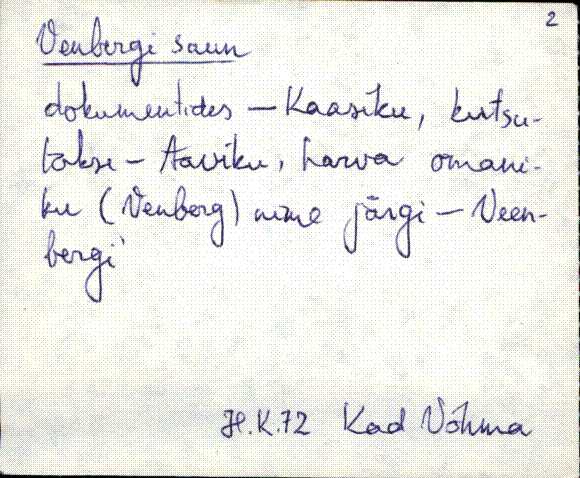 2
Venbergi saun
dokumentides – Kaasiku, kutsu-
takse – Aaviku, harva omani-
ku (Venberg) nime järgi – Veen-
bergi
H.K.72 Kad Võhma